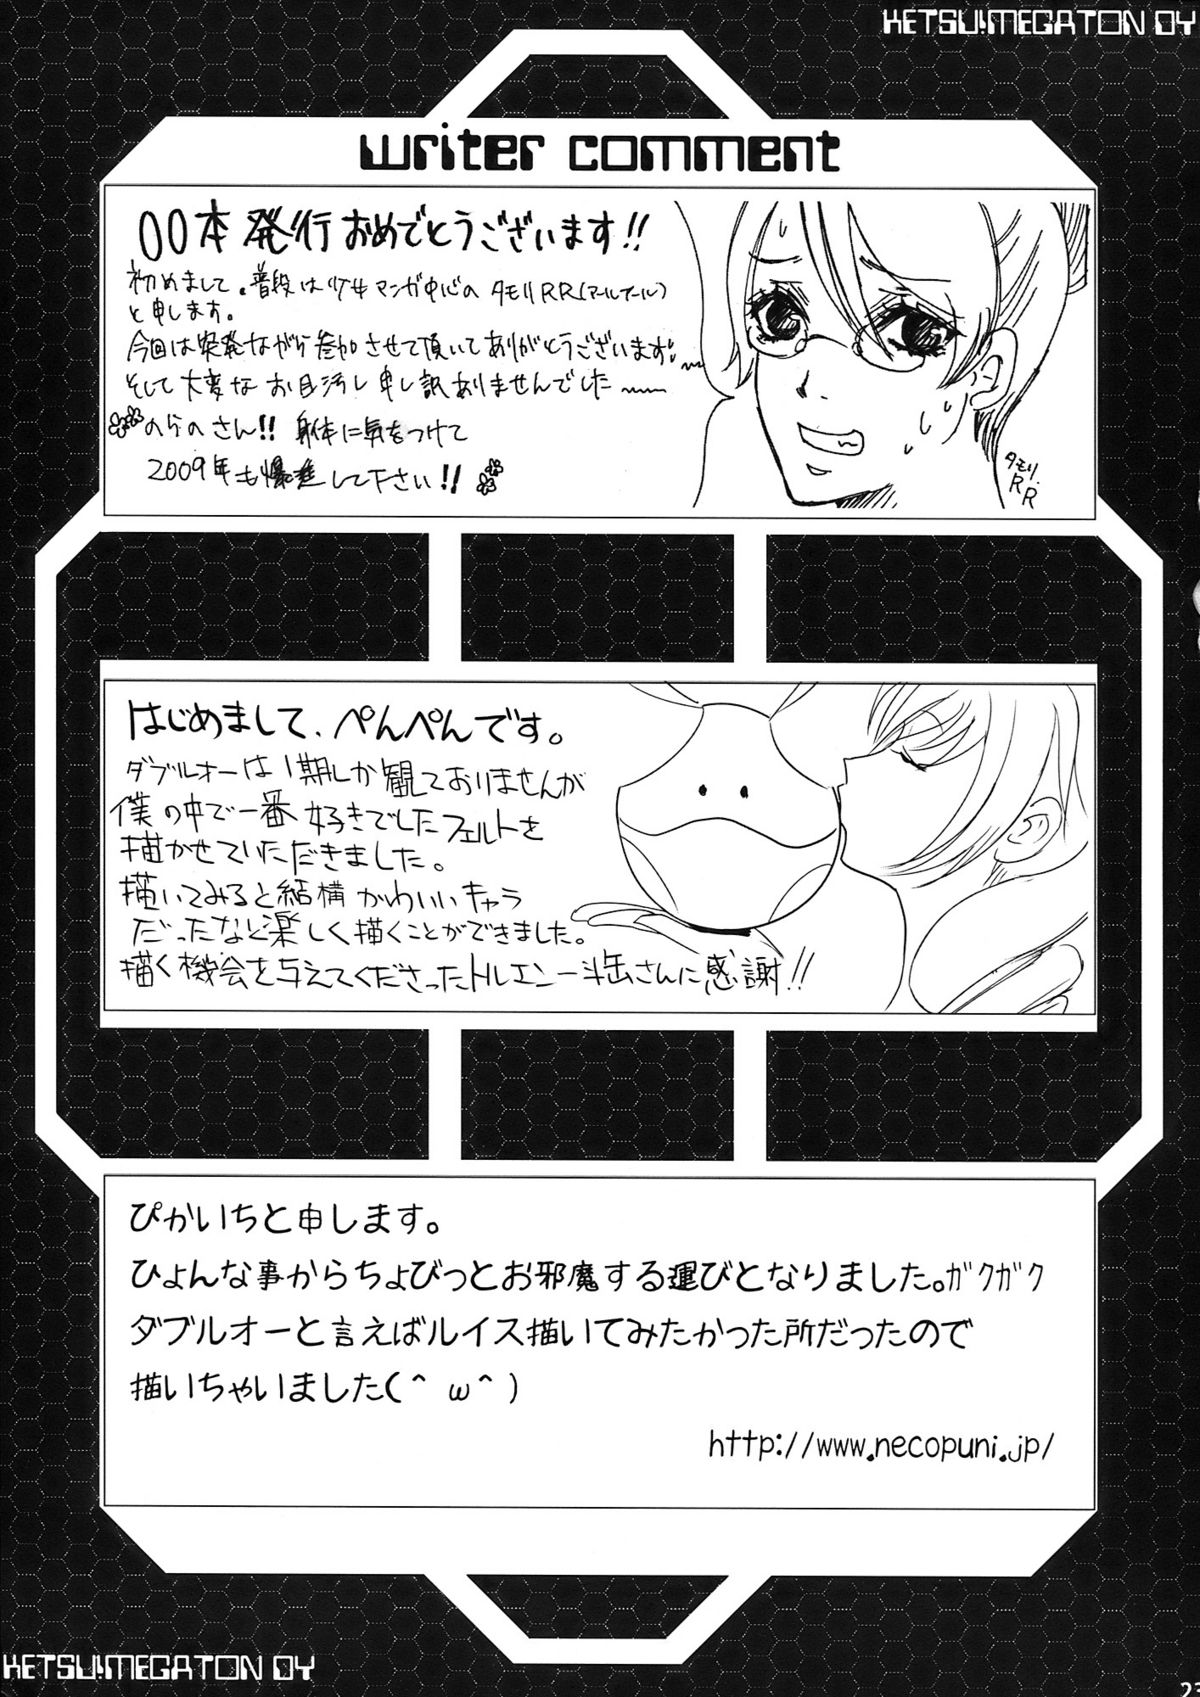 KETSU!MEGATON OY
writer comment
OO本発行おめでとうございます!!
初めまして。普段は少女マンガ中心のタモリRR(アールアール)
と申します。
今回は突発ながら参加させて頂いてありがとうございます。
そして大変なお目汚し申し訳ありませんでした〜
のらのさん!! 身体に気をつけて
2009年も爆進して下さい!!
タモリ
RR
はじめまして、ぺんぺんです。
ダブルオーは1期しか観ておりませんが
僕の中で一番好きでしたフェルトを
描かせていただきました。
描いてみると結構かわいいキャラ
だったなと楽しく描くことができました。
描く機会を与えてくださったトルエン一斗缶さんに感謝!!
ぴかいちと申します。
ひょんな事からちょびっとお邪魔する運びとなりました。ガクガク
ダブルオーと言えばルイス描いてみたかった所だったので
描いちゃいました(^ω^)
http://www.necopuni.jp/
KETSU!MEGATON OY